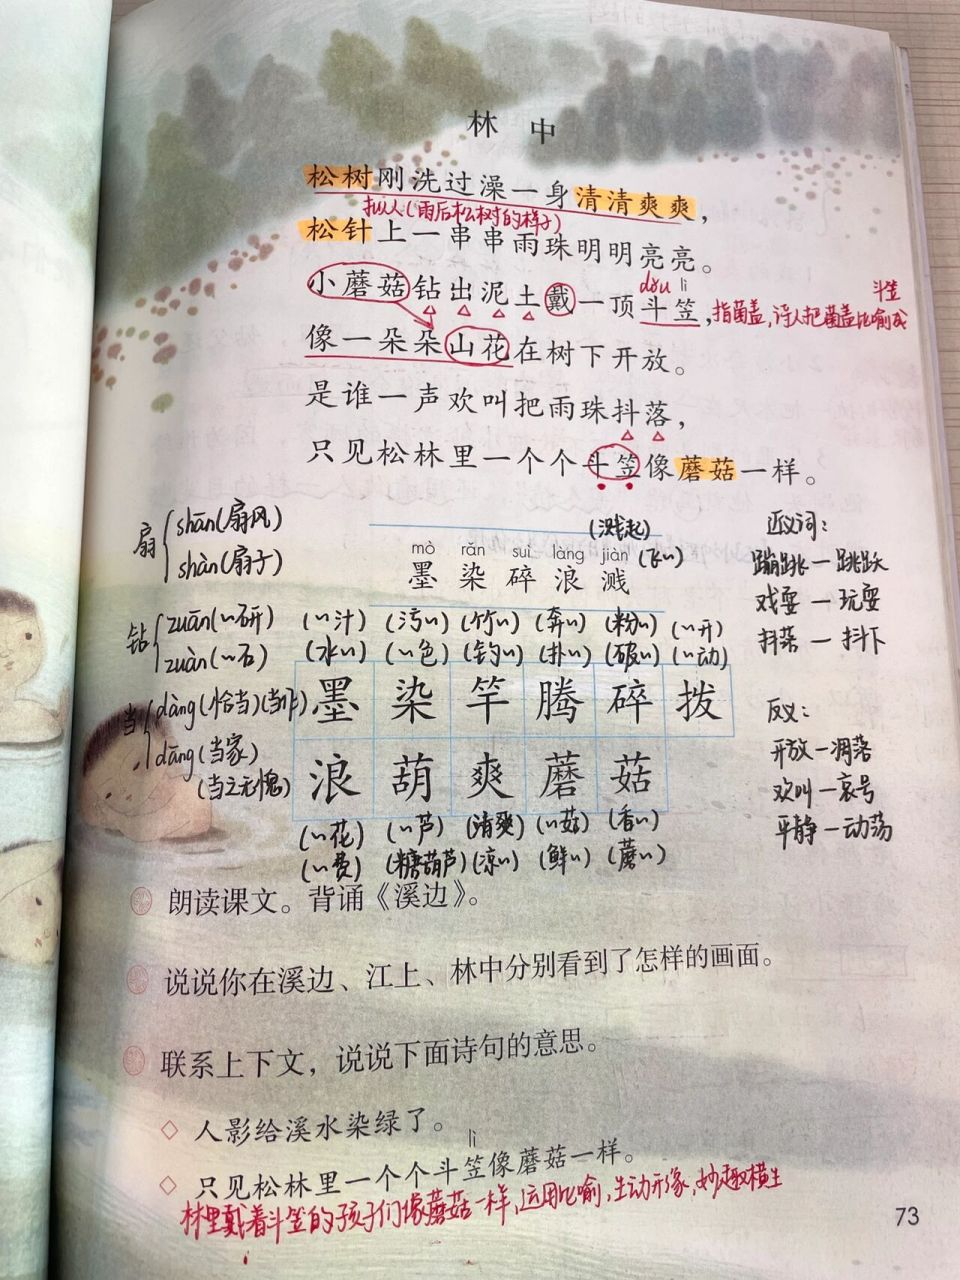 林 中
松树刚洗过澡一身清清爽爽，
拟人(雨后松树的样子)
松针上一串串雨珠明明亮亮。
dǒu lì
小蘑菇钻出泥土戴一顶斗笠，指菌盖，诗人把菌盖比喻成斗笠
像一朵朵山花在树下开放。
是谁一声欢叫把雨珠抖落，
只见松林里一个个斗笠像蘑菇一样。
扇 shān(扇风)
shàn(扇子)
(溅起)
(飞〃)
mò rǎn suì làng jiàn
墨 染 碎 浪 溅
近义词：
蹦跳—跳跃
戏耍—玩耍
抖落—抖下
钻 zuān(〃研)
zuàn(〃石)
(〃汁) (污〃) (竹〃) (奔〃) (粉〃) (〃开)
(水〃) (〃色) (钓〃) (扑〃) (破〃) (〃动)
当 dàng(恰当)(当作)
dāng(当家)
(当之无愧)
墨 染 竿 腾 碎 拨
浪 葫 爽 蘑 菇
反义：
开放—凋落
欢叫—哀号
平静—动荡
(〃花) (〃芦) (清爽) (〃菇) (香〃)
(〃费) (糖葫芦) (凉〃) (鲜〃) (蘑〃)
朗读课文。背诵《溪边》。
说说你在溪边、江上、林中分别看到了怎样的画面。
联系上下文，说说下面诗句的意思。
◇ 人影给溪水染绿了。
lì
◇ 只见松林里一个个斗笠像蘑菇一样。
林里戴着斗笠的孩子们像蘑菇一样，运用比喻，生动形象，妙趣横生
73